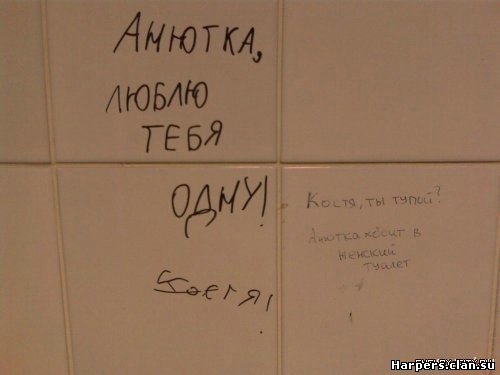 Анютка,
люблю
тебя
одну!
Костя!
Костя, ты тупой?
Анютка ходит в
женский
туалет
Harpers.clan.su